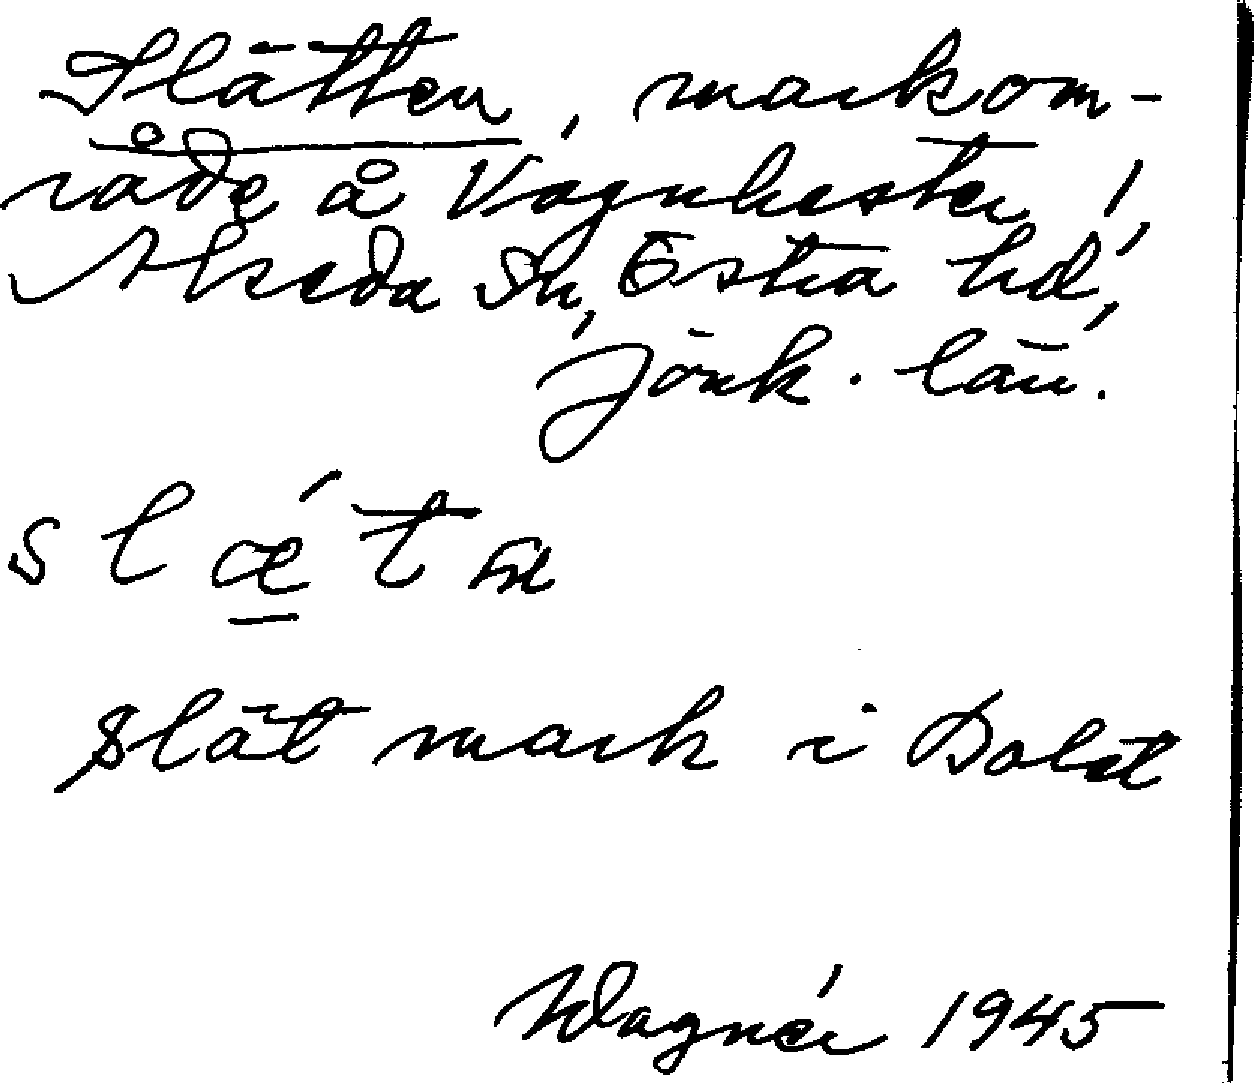 Slätten, markom-
råde å Vagnhester,
Alseda Sn, Östra hd,
Jönk. län.
slǽtən
Slät mark i
Wagnér 1945